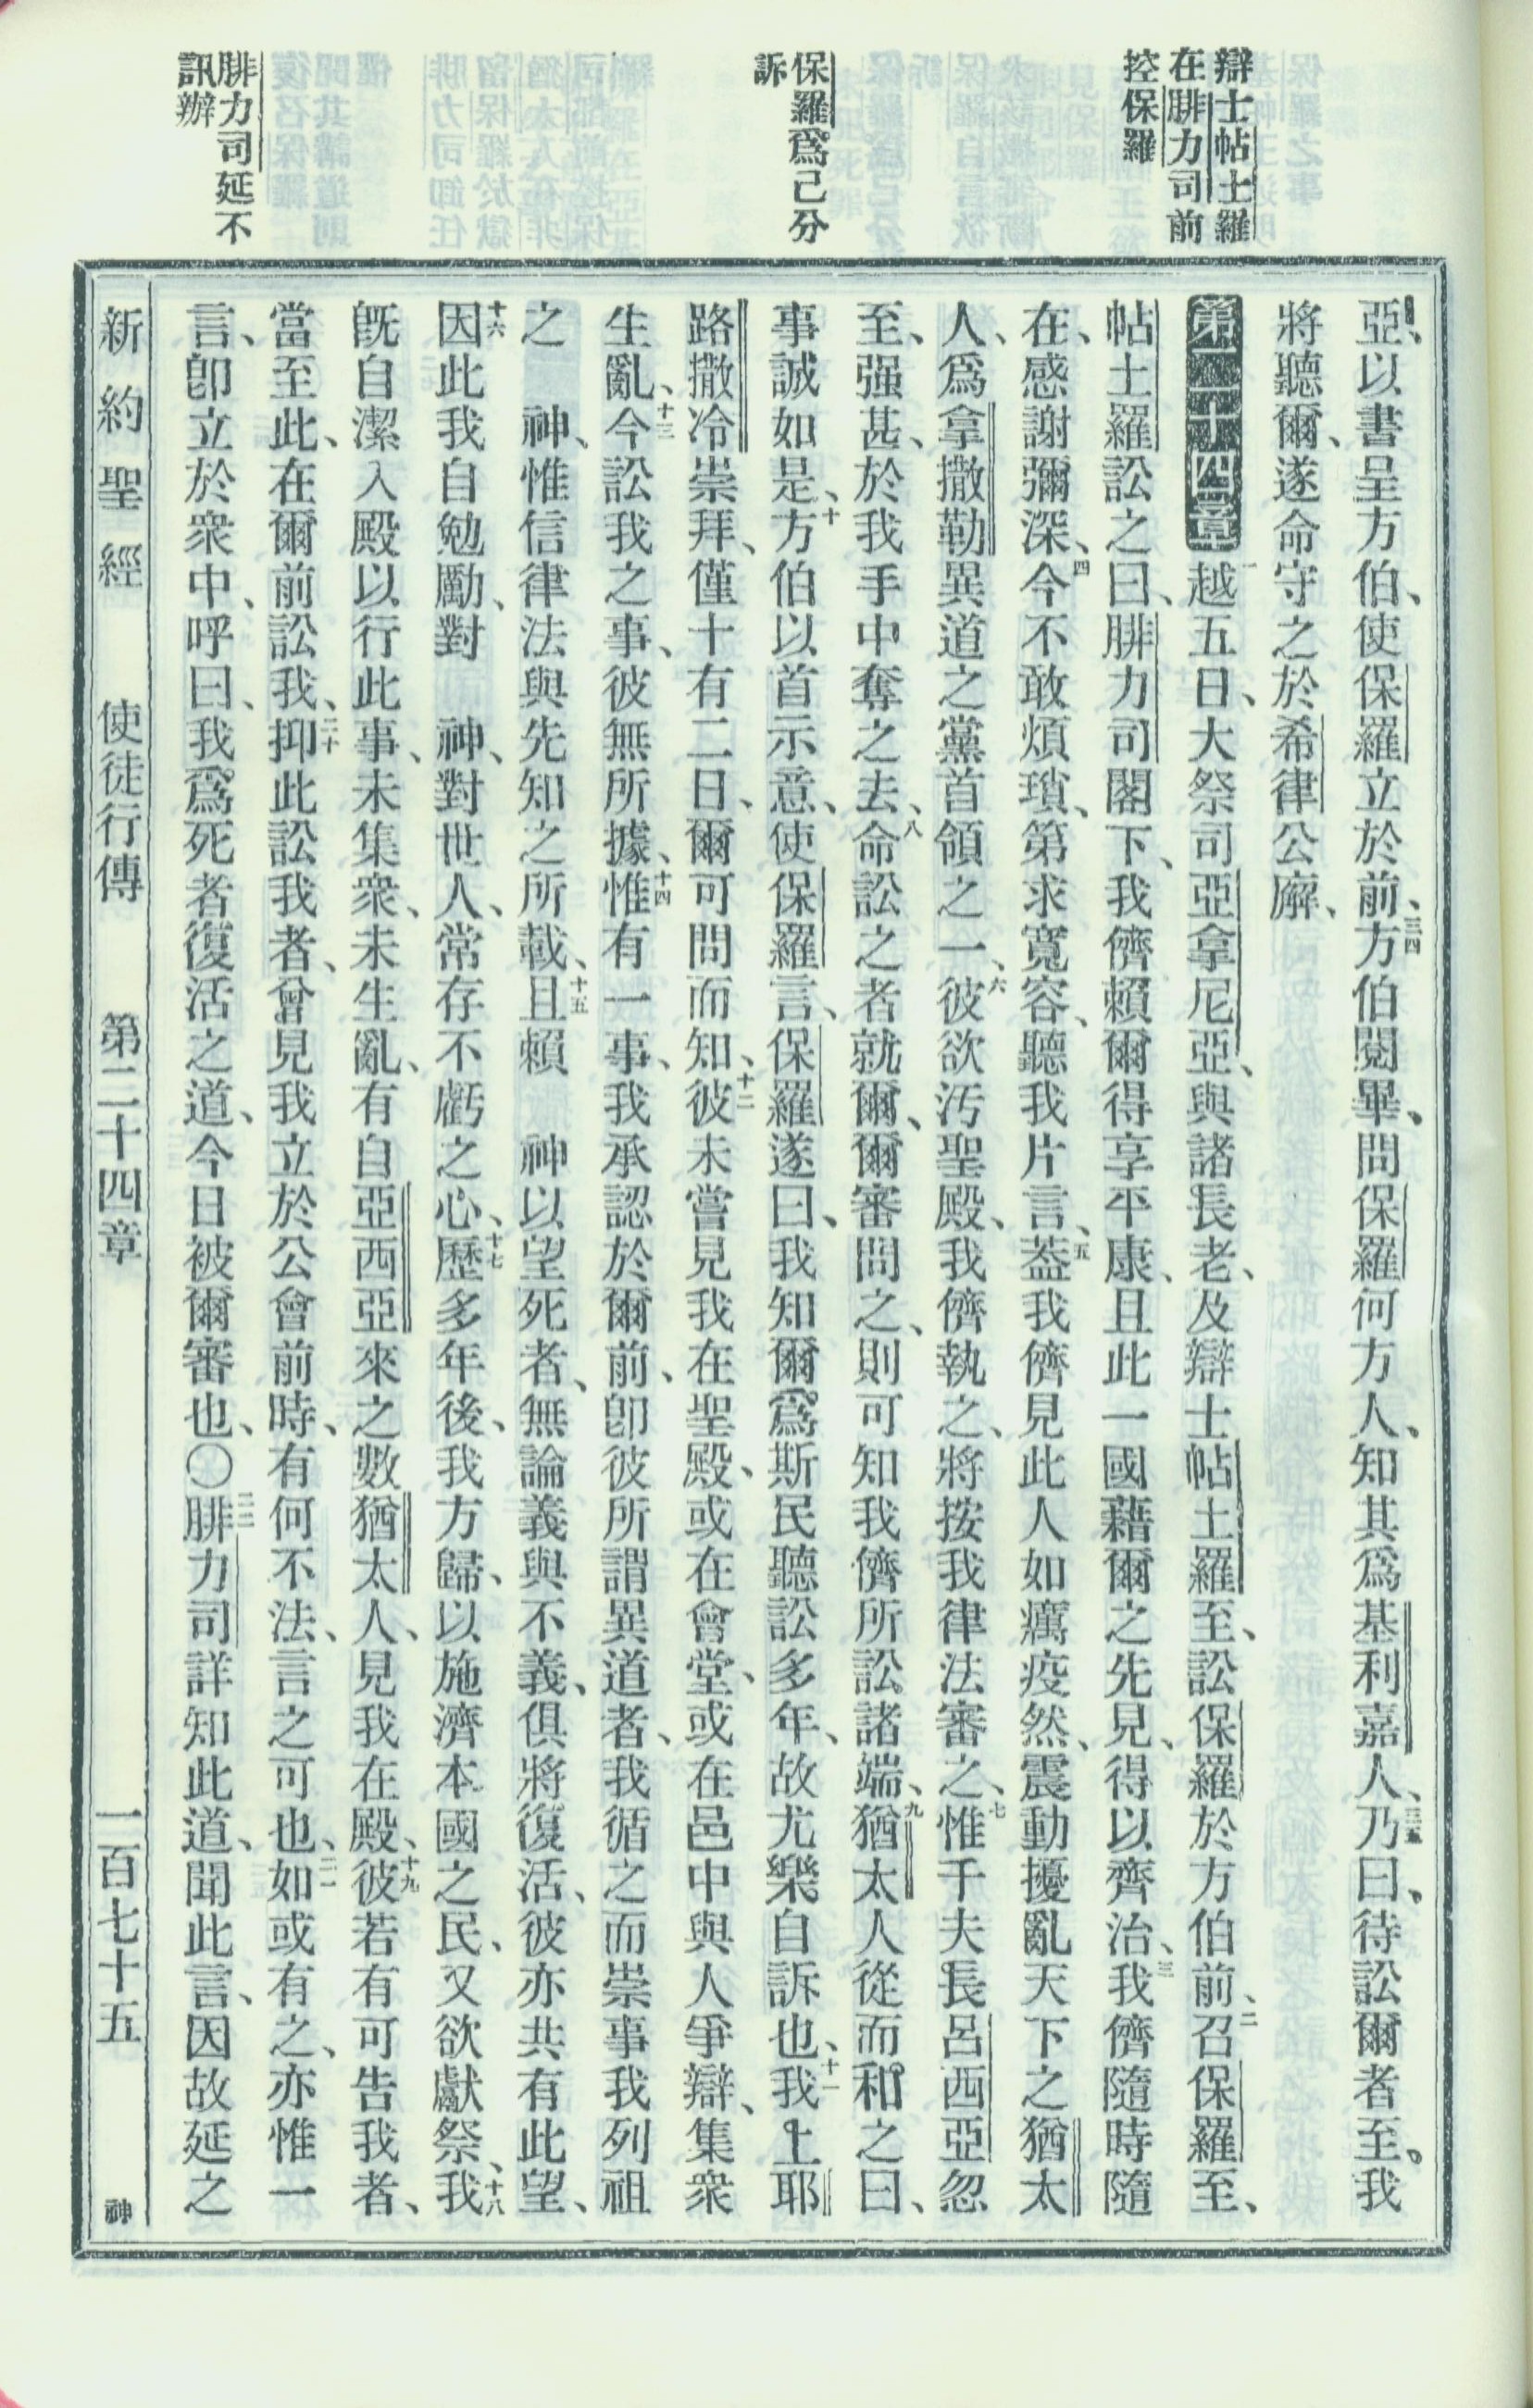 辯士帖土羅
在腓力司前
控保羅
保羅爲己分
訴
腓力司延不
訊辦
亞、以書呈方伯、使保羅立於前、三四方伯閱畢、問保羅何方人、知其爲基利嘉人、三五乃曰、待訟爾者至、我
將聽爾、遂命守之於希律公廨、
第二十四章 一越五日、大祭司亞拿尼亞、與諸長老、及辯士帖土羅至、訟保羅於方伯前、二召保羅至、
帖土羅訟之曰、腓力司閣下、我儕賴爾得享平康、且此一國藉爾之先見、得以齊治、三我儕隨時隨
在、感謝彌深、四今不敢煩瑣、第求寬容、聽我片言、五蓋我儕見此人如癘疫然、震動擾亂天下之猶太
人、爲拿撒勒異道之黨首領之一、六彼欲汚聖殿、我儕執之、將按我律法審之、七惟千夫長呂西亞忽
至、强甚、於我手中奪之去、八命訟之者就爾、爾審問之、則可知我儕所訟諸端、九猶太人從而和之曰、
事誠如是、十方伯以首示意、使保羅言、保羅遂曰、我知爾爲斯民聽訟多年、故尤樂自訴也、十一我上耶
路撒冷崇拜、僅十有二日、爾可問而知、十二彼未嘗見我在聖殿、或在會堂、或在邑中與人爭辯、集衆
生亂、十三今訟我之事、彼無所據、十四惟有一事、我承認於爾前、卽彼所謂異道者、我循之而崇事我列祖
之　神、惟信律法與先知之所載、十五且賴　神以望死者、無論義與不義、俱將復活、彼亦共有此望、
十六因此我自勉勵、對　神、對世人、常存不虧之心、十七歷多年後、我方歸、以施濟本國之民、又欲獻祭、十八我
旣自潔入殿以行此事、未集衆、未生亂、有自亞西亞來之數猶太人、見我在殿、十九彼若有可告我者、
當至此、在爾前訟我、二十抑此訟我者、曾見我立於公會前時、有何不法、言之可也、二一如或有之、亦惟一
言、卽立於衆中、呼曰、我爲死者復活之道、今日被爾審也、〇二二腓力司詳知此道、聞此言、因故延之
新約聖經　使徒行傳　第二十四章　一百七十五　神